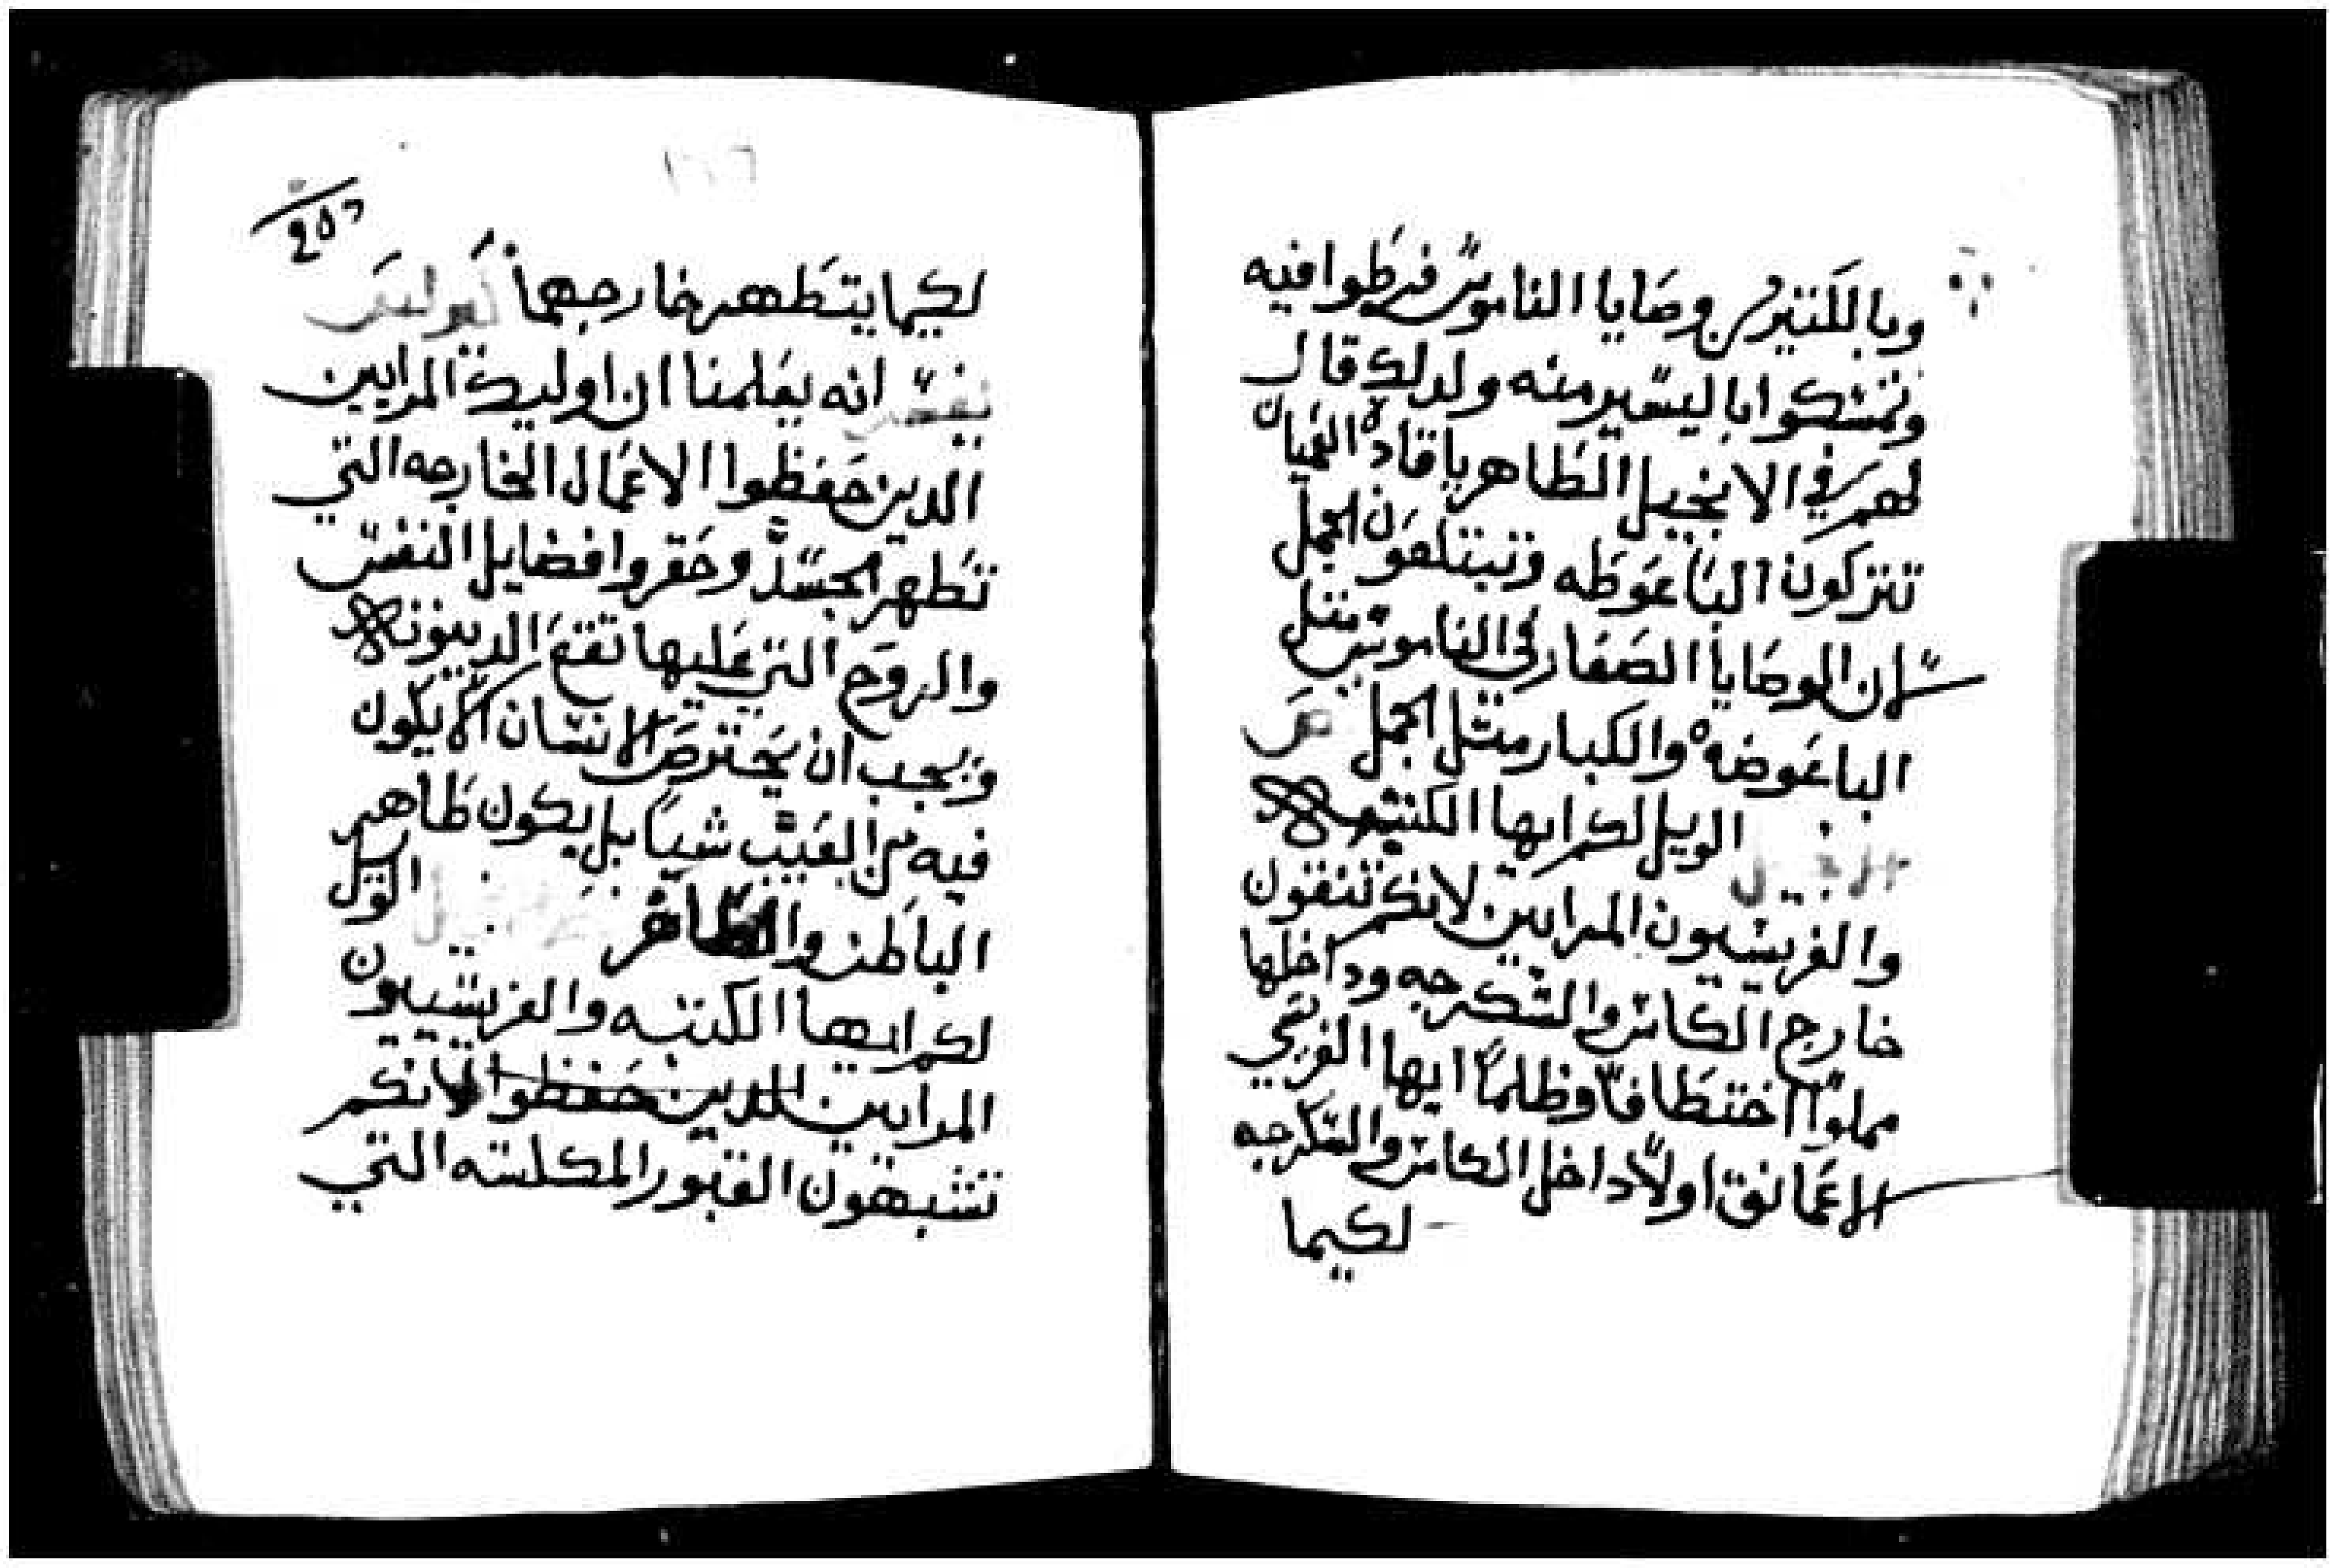 وبالكتير من وصايا الناموس فرطوا فيه
وتمسكوا باليسير منه ولدلك قال
لهم في الانجيل الطاهر ياقادة العميان
تتركون الباعوطه وتبتلعون الجمل
ان الوصايا الصغار في الناموس متل
الباعوضه والكبار متل الجمل
الويل لكم ايها الكتبه
والفريسيون المرايين لانكم تنقون
خارج الكاس والسكرجه وداخلها
مملوا اختطافا وظلما ايها الفريسي
الاعما نق اولا داخل الكاس والسكرجه
لكيما
لكيما يتطهر خارجهما
انه يعلمنا ان اوليك المرايين
الدين حفظوا الاعمال الخارجه التي
تطهر الجسد وحقروا فضايل النفس
والروح التي عليها تقع الدينونه
ويجب ان يحترص الانسان الا يكون
فيه من العيب شيا بل يكون طاهر
الباطن والظاهر الويل
لكم ايها الكتبه والفريسيون
المرايين الدين حفظوا لانكم
تشبهون القبور المكلسه التي